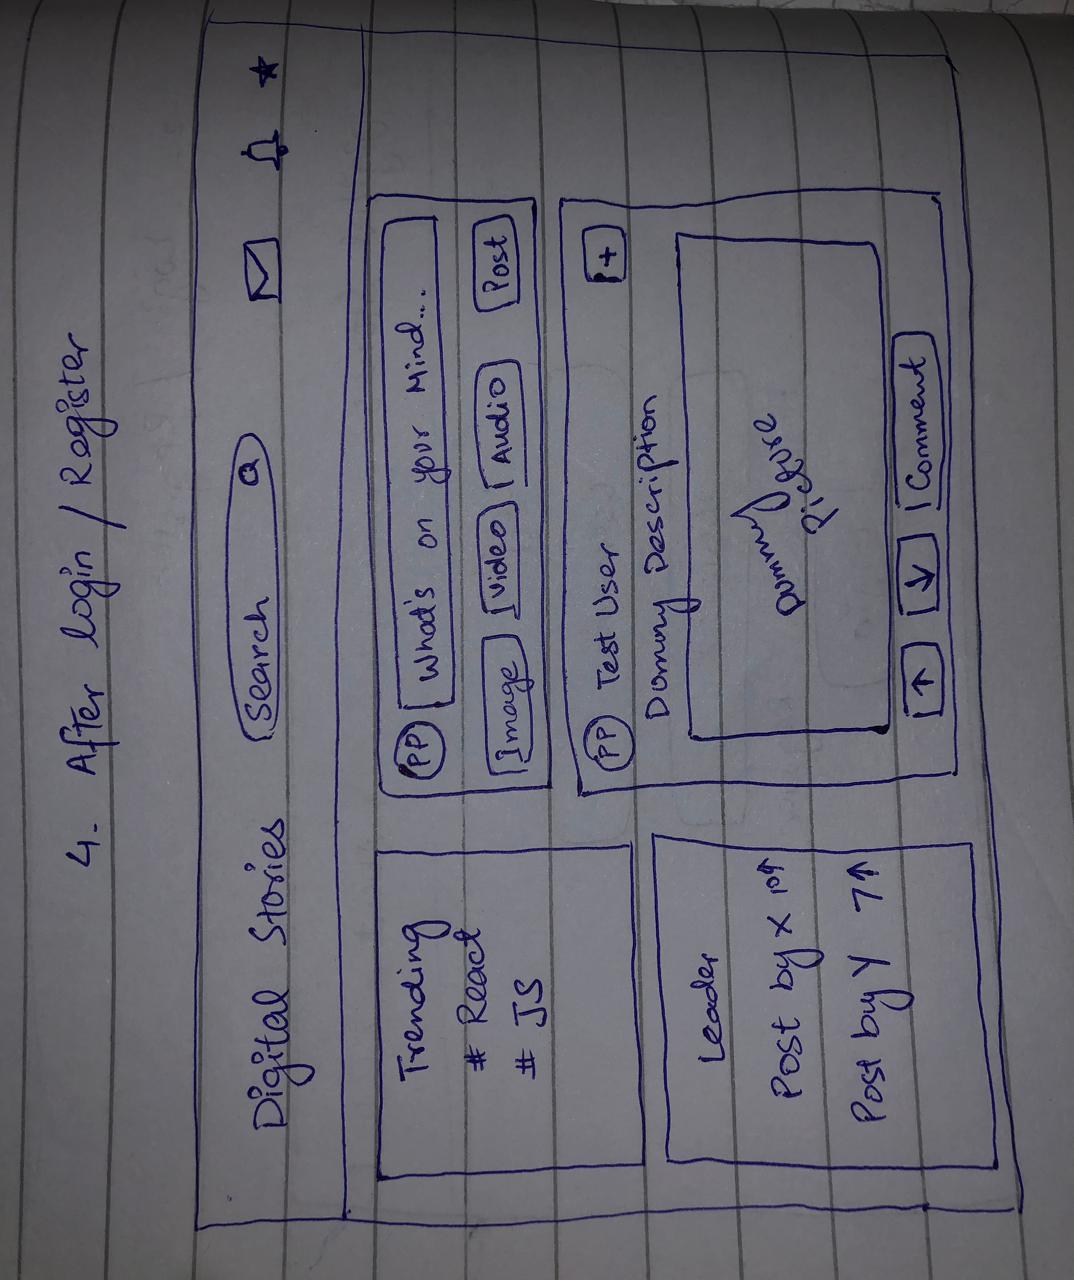 4. After login / Register
Digital Stories
Search
Trending
# React
# JS
Leader
Post by X 10↑
Post by Y 7↑
PP
What's on your Mind...
Image
Video
Audio
Post
PP
Test User
+
Dummy Description
Dummy
Picture
↑
↓
Comment